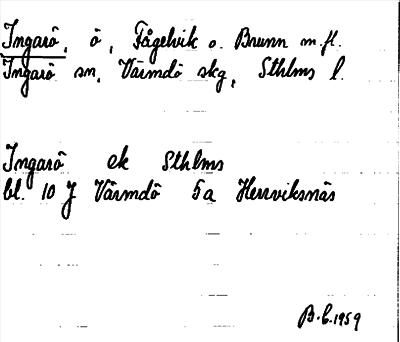 Ingarö, ö, Fågelvik o. Brunn m.fl.
Ingarö sn, Värmdö skg, Sthlms l.
Ingarö ek Sthlms
bl. 10 J Värmdö 5a Herrviksnäs
B.C. 1959